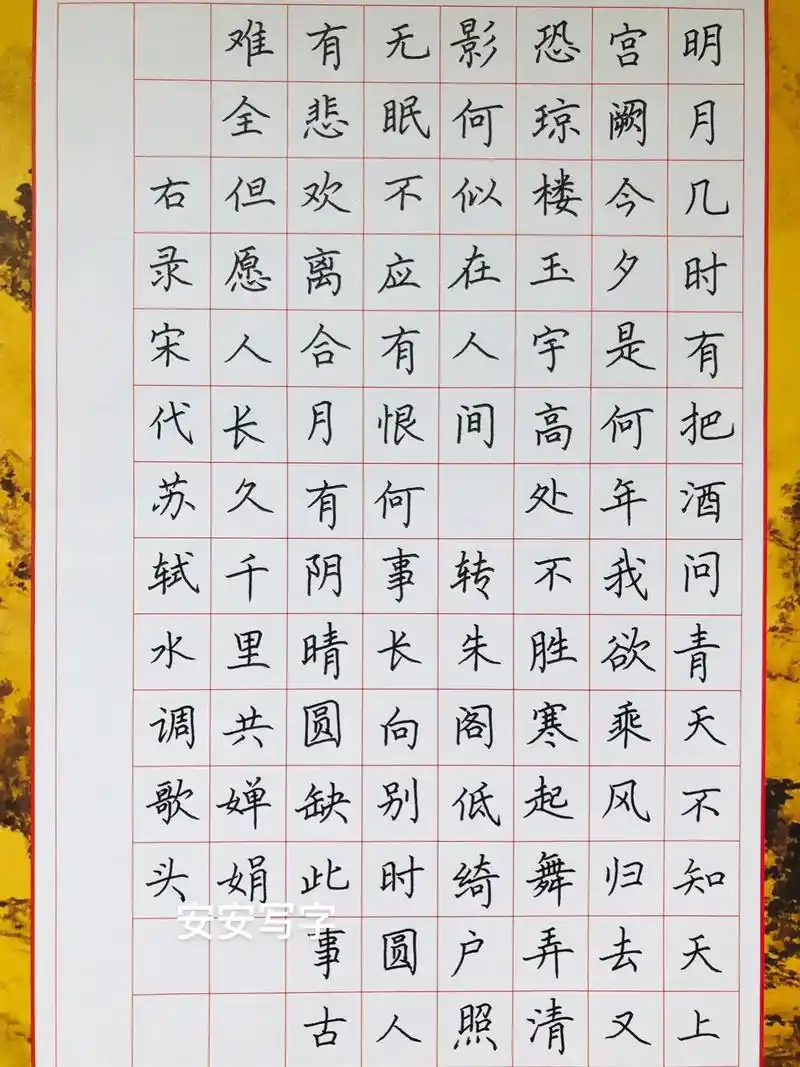 明月几时有把酒问青天不知天上
宫阙今夕是何年我欲乘风归去又
恐琼楼玉宇高处不胜寒起舞弄清
影何似在人间 转朱阁低绮户照
无眠不应有恨何事长向别时圆人
有悲欢离合月有阴晴圆缺此事古
难全但愿人长久千里共婵娟
右录宋代苏轼水调歌头
安安写字